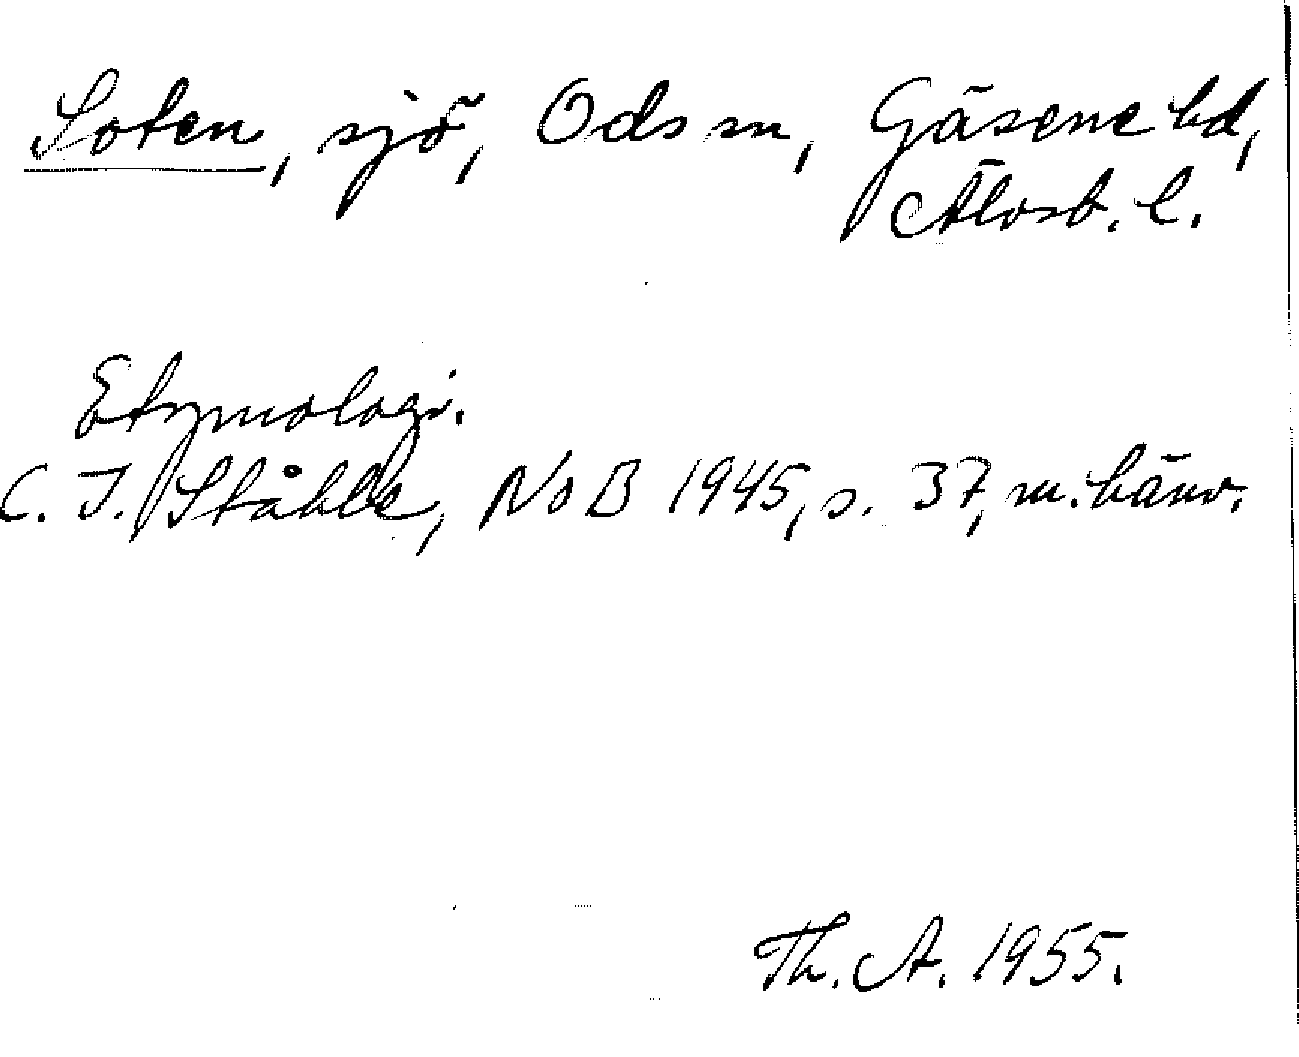 Soten, sjö, Ods sn, Gäsene hd,
Älvsb. l.
Etymologi.
C. I. Ståhle, NoB 1945, s. 37, m. hänv.
Th. A. 1955.